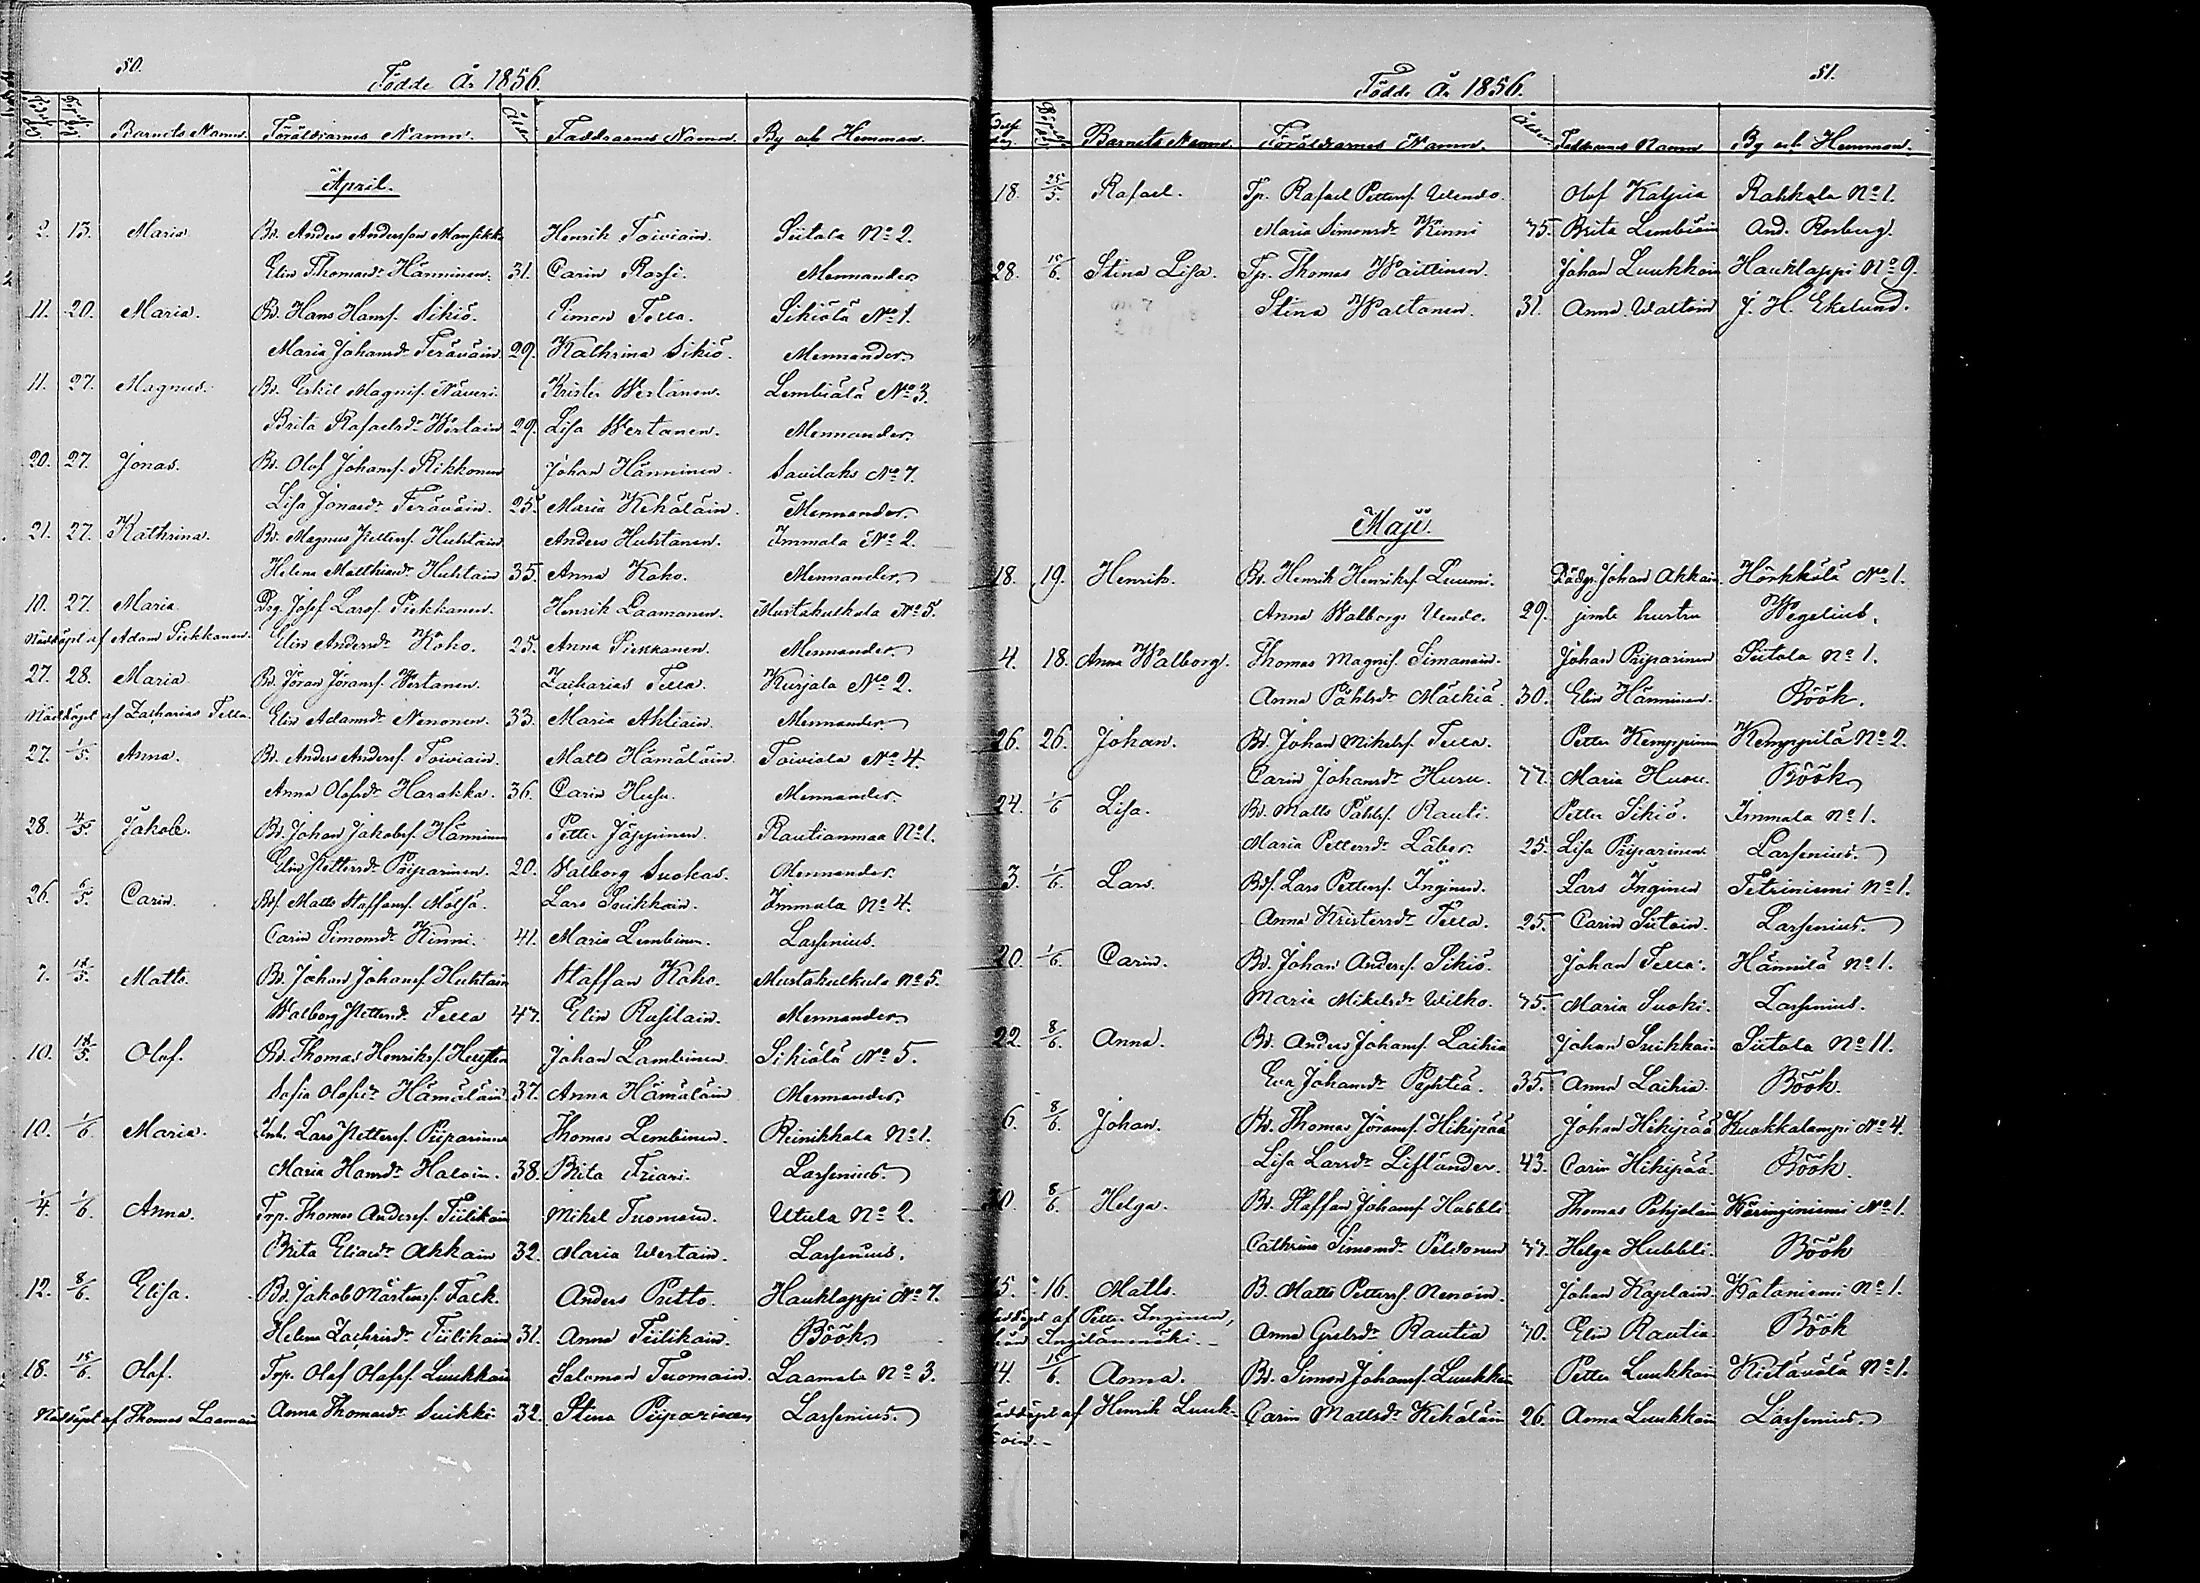 50.
Födde År 1856.
Födelse dag. Döpelse dag. Barnets Namn. Föräldrarnes Namn. Ålder Faddrarnes Namn. By och Hemman.
April.
2. 13. Maria Bd. Anders Andersson Mansikka Henrik Toiviain. Siitola No 2.
Elin Thomasdr Hänninen. 31. Carin Rossi. Mennander.
11. 20. Maria. Bd. Hans Hansf. Sikiö. Simon Tella. Sikiälä No 1.
Maria Johansdr Teräväin. 29. Kathrina Sikiö. Mennander.
11. 27. Magnus. Bd. Eskil Magnif. Näveri. Krister Wertänen. Lembiälä No 3.
Brita Rafaelsdr Wertain 29. Lisa Wertanen. Mennander.
20. 27. Jonas. Bd. Olof Johansf. Rikkonen Johan Hänninen. Savilaks No 7.
Lisa Jonasdr Teräväin. 25. Maria Kekäläin. Mennander.
21. 27. Kathrina. Bd. Magnus Pettersf. Huhtain Anders Huhtanen. Immala No 2.
Helena Matthiasdr Huhtain 35. Anna Koho. Mennander.
10. 27. Maria Drg. Josef Larsf. Piekkanen. Henrik Laamanen. Mustakulkula No 5.
Nöddöpt af Adam Piekkanen. Elin Andersdr Koho. 25. Anna Piekkanen. Mennander.
27. 28. Maria Bd. Jöran Jöransf. Wertanen. Zacharias Tella. Kurjala No 2.
Nöddöpt af Zacharias Tella. Elin Adamsdr Nenonen. 33. Maria Ahtiain. Mennander.
27. 1/5. Anna. Bd. Anders Andersf. Toiviain. Matts Hämäläin. Toiviola No 4.
Anna Olofsdr Harakka. 36. Carin Husu. Mennander.
28. 4/5. Jakob. Bd. Johan Jakobsf. Hänninen Petter Jäppinen. Rautianmaa No 1.
Elin Pettersdr Piiparinen. 20. Walborg Suokas. Mennander.
26. 6/5. Carin. Bdf. Matts Staffansf. Mölsä. Lars Suikkain. Immala No 4.
Carin Simonsdr Kinni. 41. Maria Lembinen. Larsenius.
7. 18/5. Matts. Bd. Johan Johansf. Huhtain Staffan Koho. Mustakulkula No 5.
Walborg Pettersdr Tella 47. Elin Rusilain. Mennander.
10. 18/5. Olof. Bd. Thomas Henriksf. Johan Lambinen. Sikiälä No 5.
Sofia Olofsdr Hämäläin 37. Anna Hämäläin Mennander.
10. 1/6. Maria. Inh. Lars Pettersf. Piiparinen Thomas Lembinen. Reinikkala No 1.
Maria Hansdr Halain. 38. Brita Friari. Larsenius.
1/4. 1/6. Anna. Trp. Thomas Andersf. Tiilikain Mikel Tuomain. Utula No 2.
Brita Eliasdr Akkain 32. Maria Wertain. Larsenius.
12. 8/6. Elisa. Bd. Jakob Mårtensf. Fack. Anders Pritto. Hauklappi No 7.
Helena Zachrisdr Tiilikain 31. Anna Tiilikain. Böök.
18. 15/6. Olof. Trp. Olof Olofsf. Luukkain Salomon Tuomain. Laamala No 3.
Nöddöpt af Thomas Laamain Anna Thomasdr Suikki 32. Stina Piiparinen Larsenius.
51.
Födde År 1856.
Barnets Namn. Föräldrarnes Namn. Ålder Faddrarnes Namn By och Hemman.
18. 25/5. Rafael. Tp. Rafael Pettersf. Uendo. Olof Kalpia Rahkola No 1.
Maria Simonsdr Kinni 45. Brita Lembiäin And. Rosberg.
28. 15/6. Stina Lisa. Tp. Thomas Waittinen. Johan Luukkain Hauklappi No 9.
Stina Waltonen. 31. Anna Waltoin J. H. Ekelund.
Maji.
18. 19. Henrik. Bd. Henrik Henriksf. Luumi. Johan Akkain Hörkkölä No 1.
Anna Walborg Uendo. 29. jemte hustru Wegelius.
4. 18. Anna Walborg. Thomas Magnif. Simanain. Johan Piiparinen Siitola No 1.
Anna Påhlsdr Mäthiä. 30. Elin Hänninen. Böök.
26. 26. Johan. Bd. Johan Mikelsf. Tella. Petter Kemppinen Kemppilä No 2.
Carin Johansdr Husu. 77. Maria Husu. Böök.
24. 1/6 Lisa. Bd. Matts Påhlsf. Rauti. Petter Sikiö. Immala No 1.
Maria Pettersdr Läber. 25. Lisa Piiparinen Larsenius.
3. 1/6. Lars. Bdf. Lars Pettersf. Inginen. Lars Inginen Tetriniemi No 1.
Anna Kristersdr Tella. 25. Carin Siitoin. Larsenius.
20. 1/6. Carin. Bd. Johan Andersf. Sikiö. Johan Tella. Hännilä No 1.
Maria Mikelsdr Wilko. 45. Maria Suoki. Larsenius.
22. 8/6. Anna. Bd. Anders Johansf. Laihia Johan Suikkain Siitola No 11.
Eva Johansdr Pyhtiä. 35. Anna Laihia. Böök.
6. 8/6. Johan. Bd. Thomas Jöransf. Hikipää Johan Hikipää Kuokkalampi No 4.
Lisa Larsdr Lifländer. 43. Carin Hikipää. Böök.
8/6. Helga. Bd. Staffan Johansf. Hubbli. Thomas Pohjolain Käringiniemi No 1.
Cathrina Simonsdr Peldonen 47. Helga Hubbli. Böök
16. Matts. B. Matts Pettersf. Nenoin. Johan Kaplain. Kataniemi No 1.
af Petter Inginen, Anna Grelsdr Rautia 40. Elin Rautia Böök
Ingilänmäki.
15/6. Anna. Bd. Simon Johansf. Luukkain Petter Luukkain Kietävälä No 1.
Nöddöpt af Henrik Luuk- Carin Mattsdr Kekäläin 26. Anna Luukkain Larsenius.
koin.